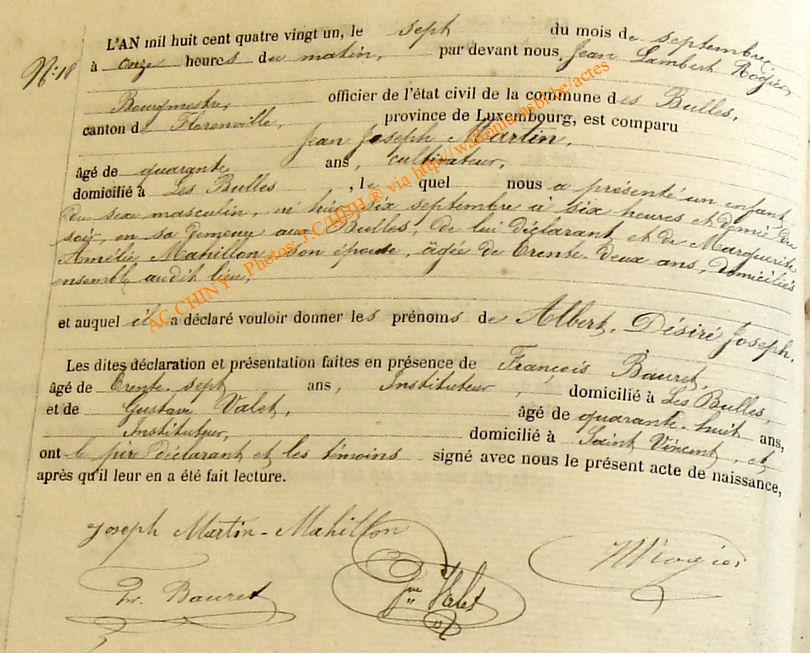 N°: 18
L'AN mil huit cent quatre vingt un, le sept du mois de septembre,
à onze heures du matin, par devant nous, Jean Lambert Rogier,
Bourgmestre, officier de l'état civil de la commune des Bulles,
canton de Florenville, province de Luxembourg, est comparu
Jean Joseph Martin,
âgé de quarante ans, cultivateur,
domicilié à Les Bulles, lequel nous a présenté un enfant
du sexe masculin, né hier, six septembre à six heures et demie du
soir, en sa demeure aux Bulles, de lui déclarant et de Marguerite
Amélie Mahillon son épouse, âgée de trente-deux ans, domiciliés
ensemble audit lieu,
et auquel il a déclaré vouloir donner les prénoms de Albert, Désiré Joseph.
Les dites déclaration et présentation faites en présence de François Bauret,
âgé de trente-sept ans, Instituteur, domicilié à Les Bulles,
et de Gustave Valet, âgé de quarante-huit ans,
Instituteur, domicilié à Saint Vincent, et
ont le père déclarant et les témoins signé avec nous le présent acte de naissance,
après qu'il leur en a été fait lecture.
Joseph Martin-Mahillon
Fr. Bauret
Gve Valet
AC CHINY - Photos J.C HBH ® via http://wallonica.asbl.be/actes